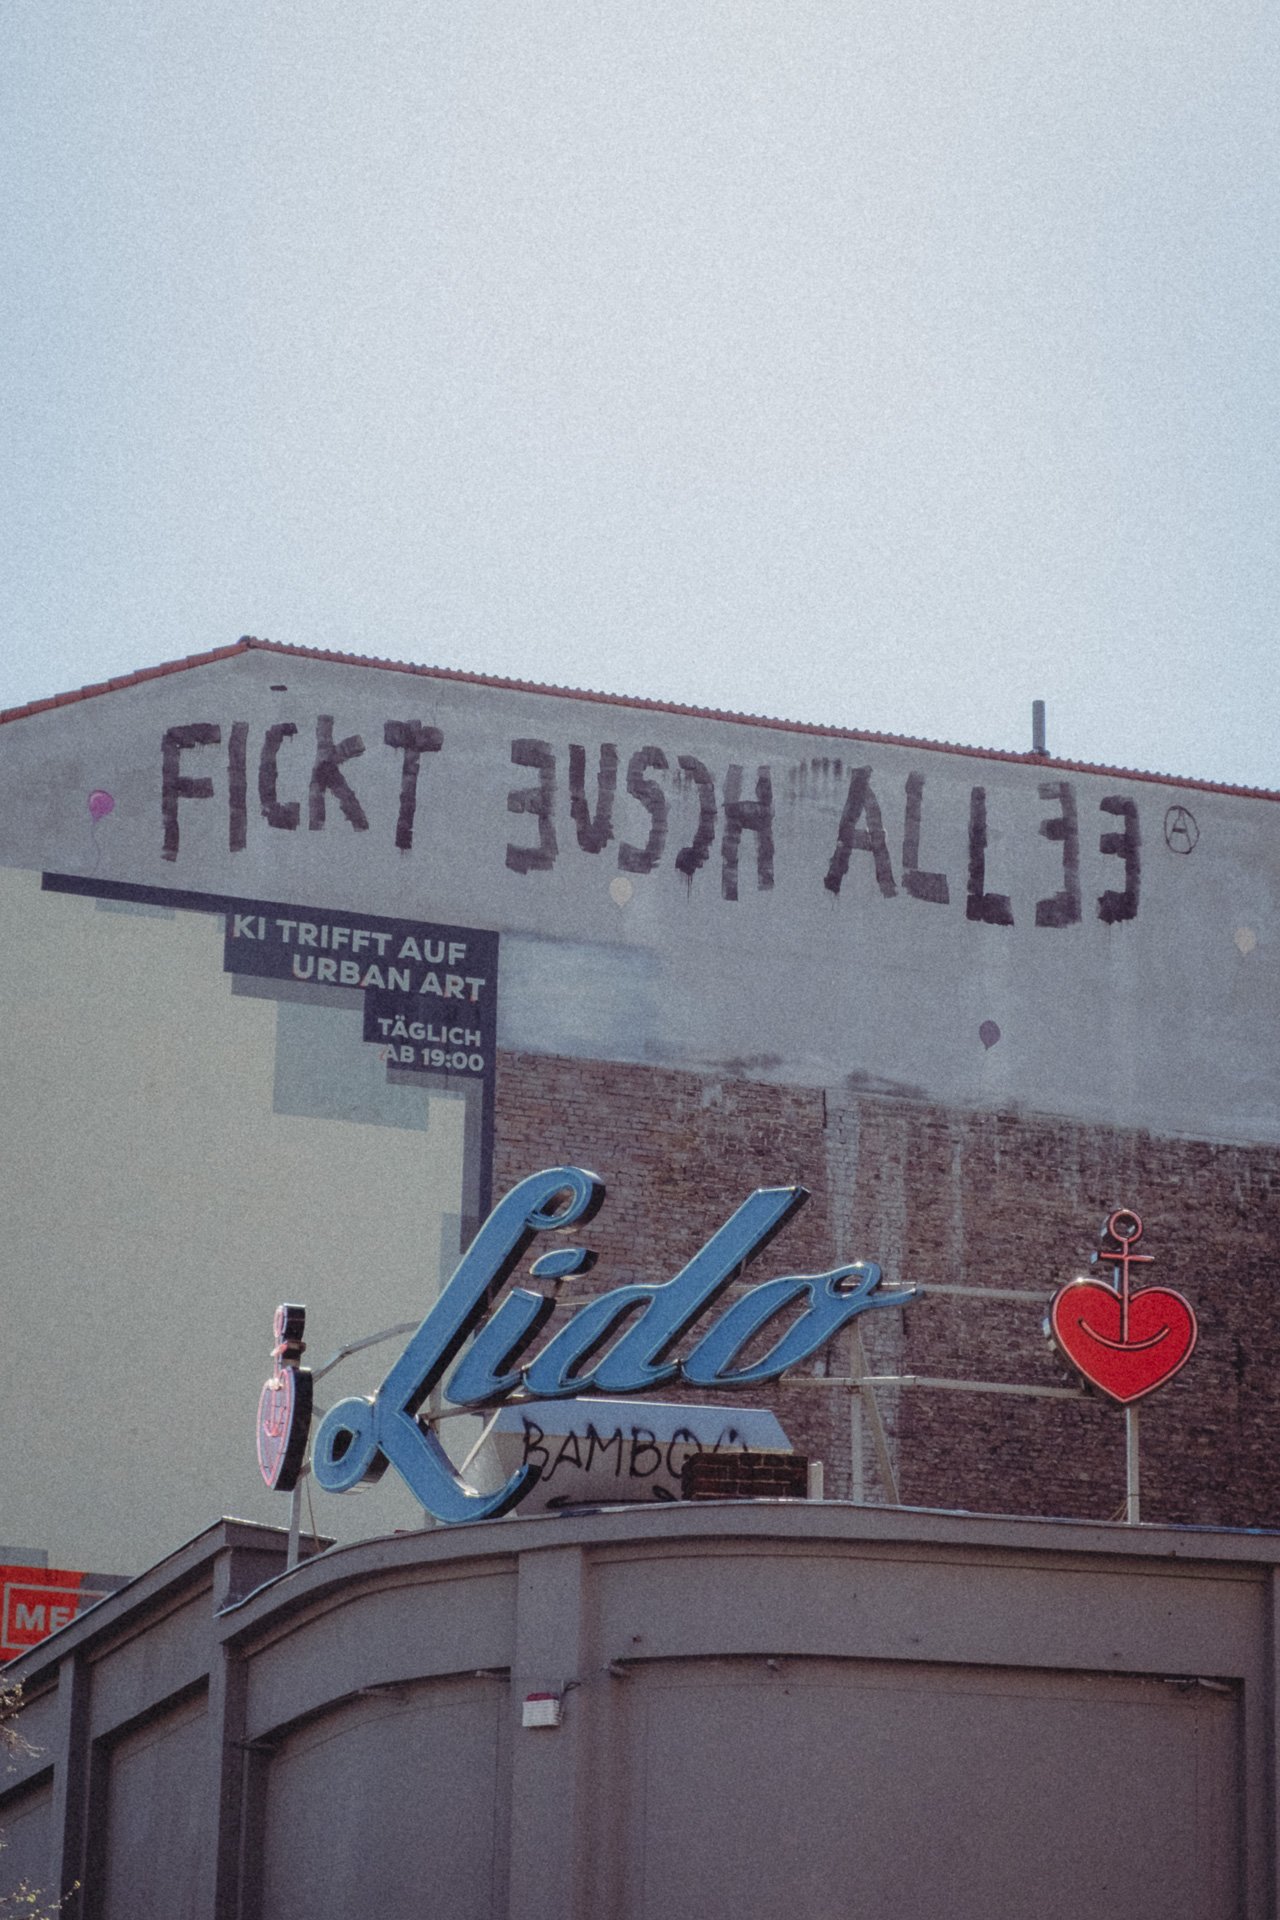 FICKT EUSCH ALLEE
A
KI TRIFFT AUF
URBAN ART
TÄGLICH
AB 19:00
Lido
BAMBOO